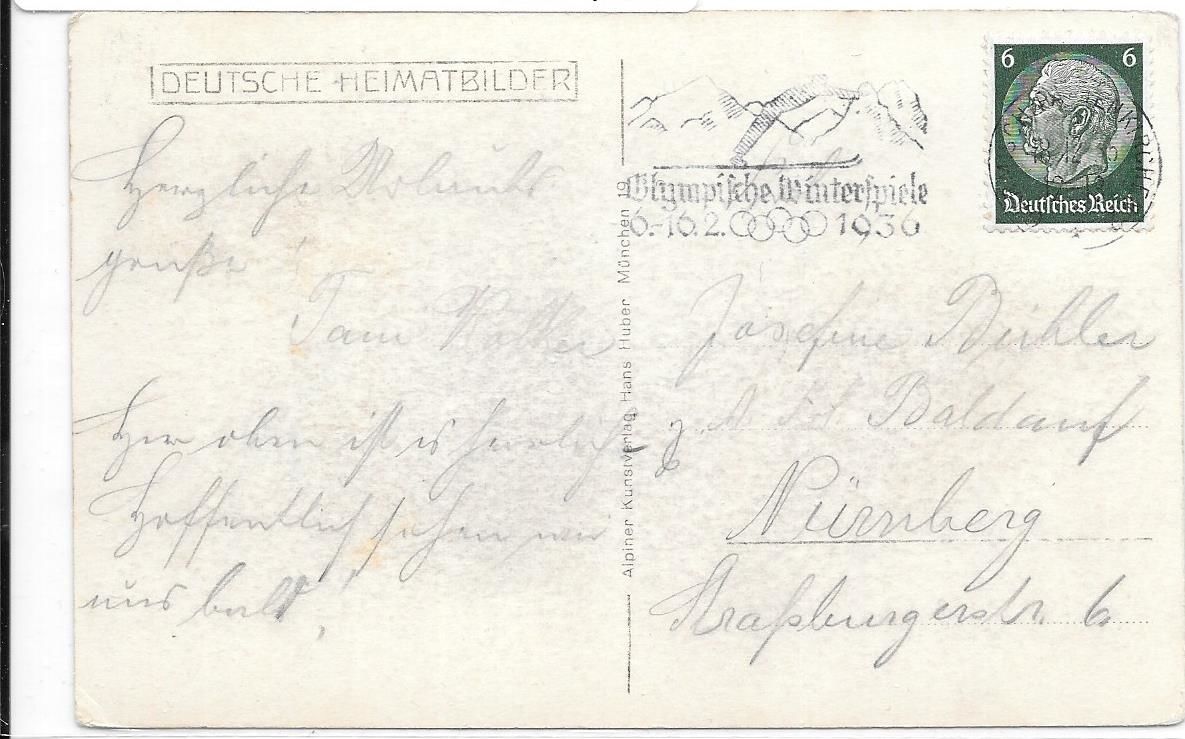 DEUTSCHE HEIMATBILDER
6 6
Deutsches Reich
Olympische Winterspiele
6.-16.2. 1936
Herzliche Urlaubs
grüße
Hier oben ist es herrlich
Hoffentlich sehen wir
uns bald,
Alpiner Kunstverlag Hans Huber München 19
Josefine Bichler
Baldauf
Nürnberg
Straßburgerstr. 6.